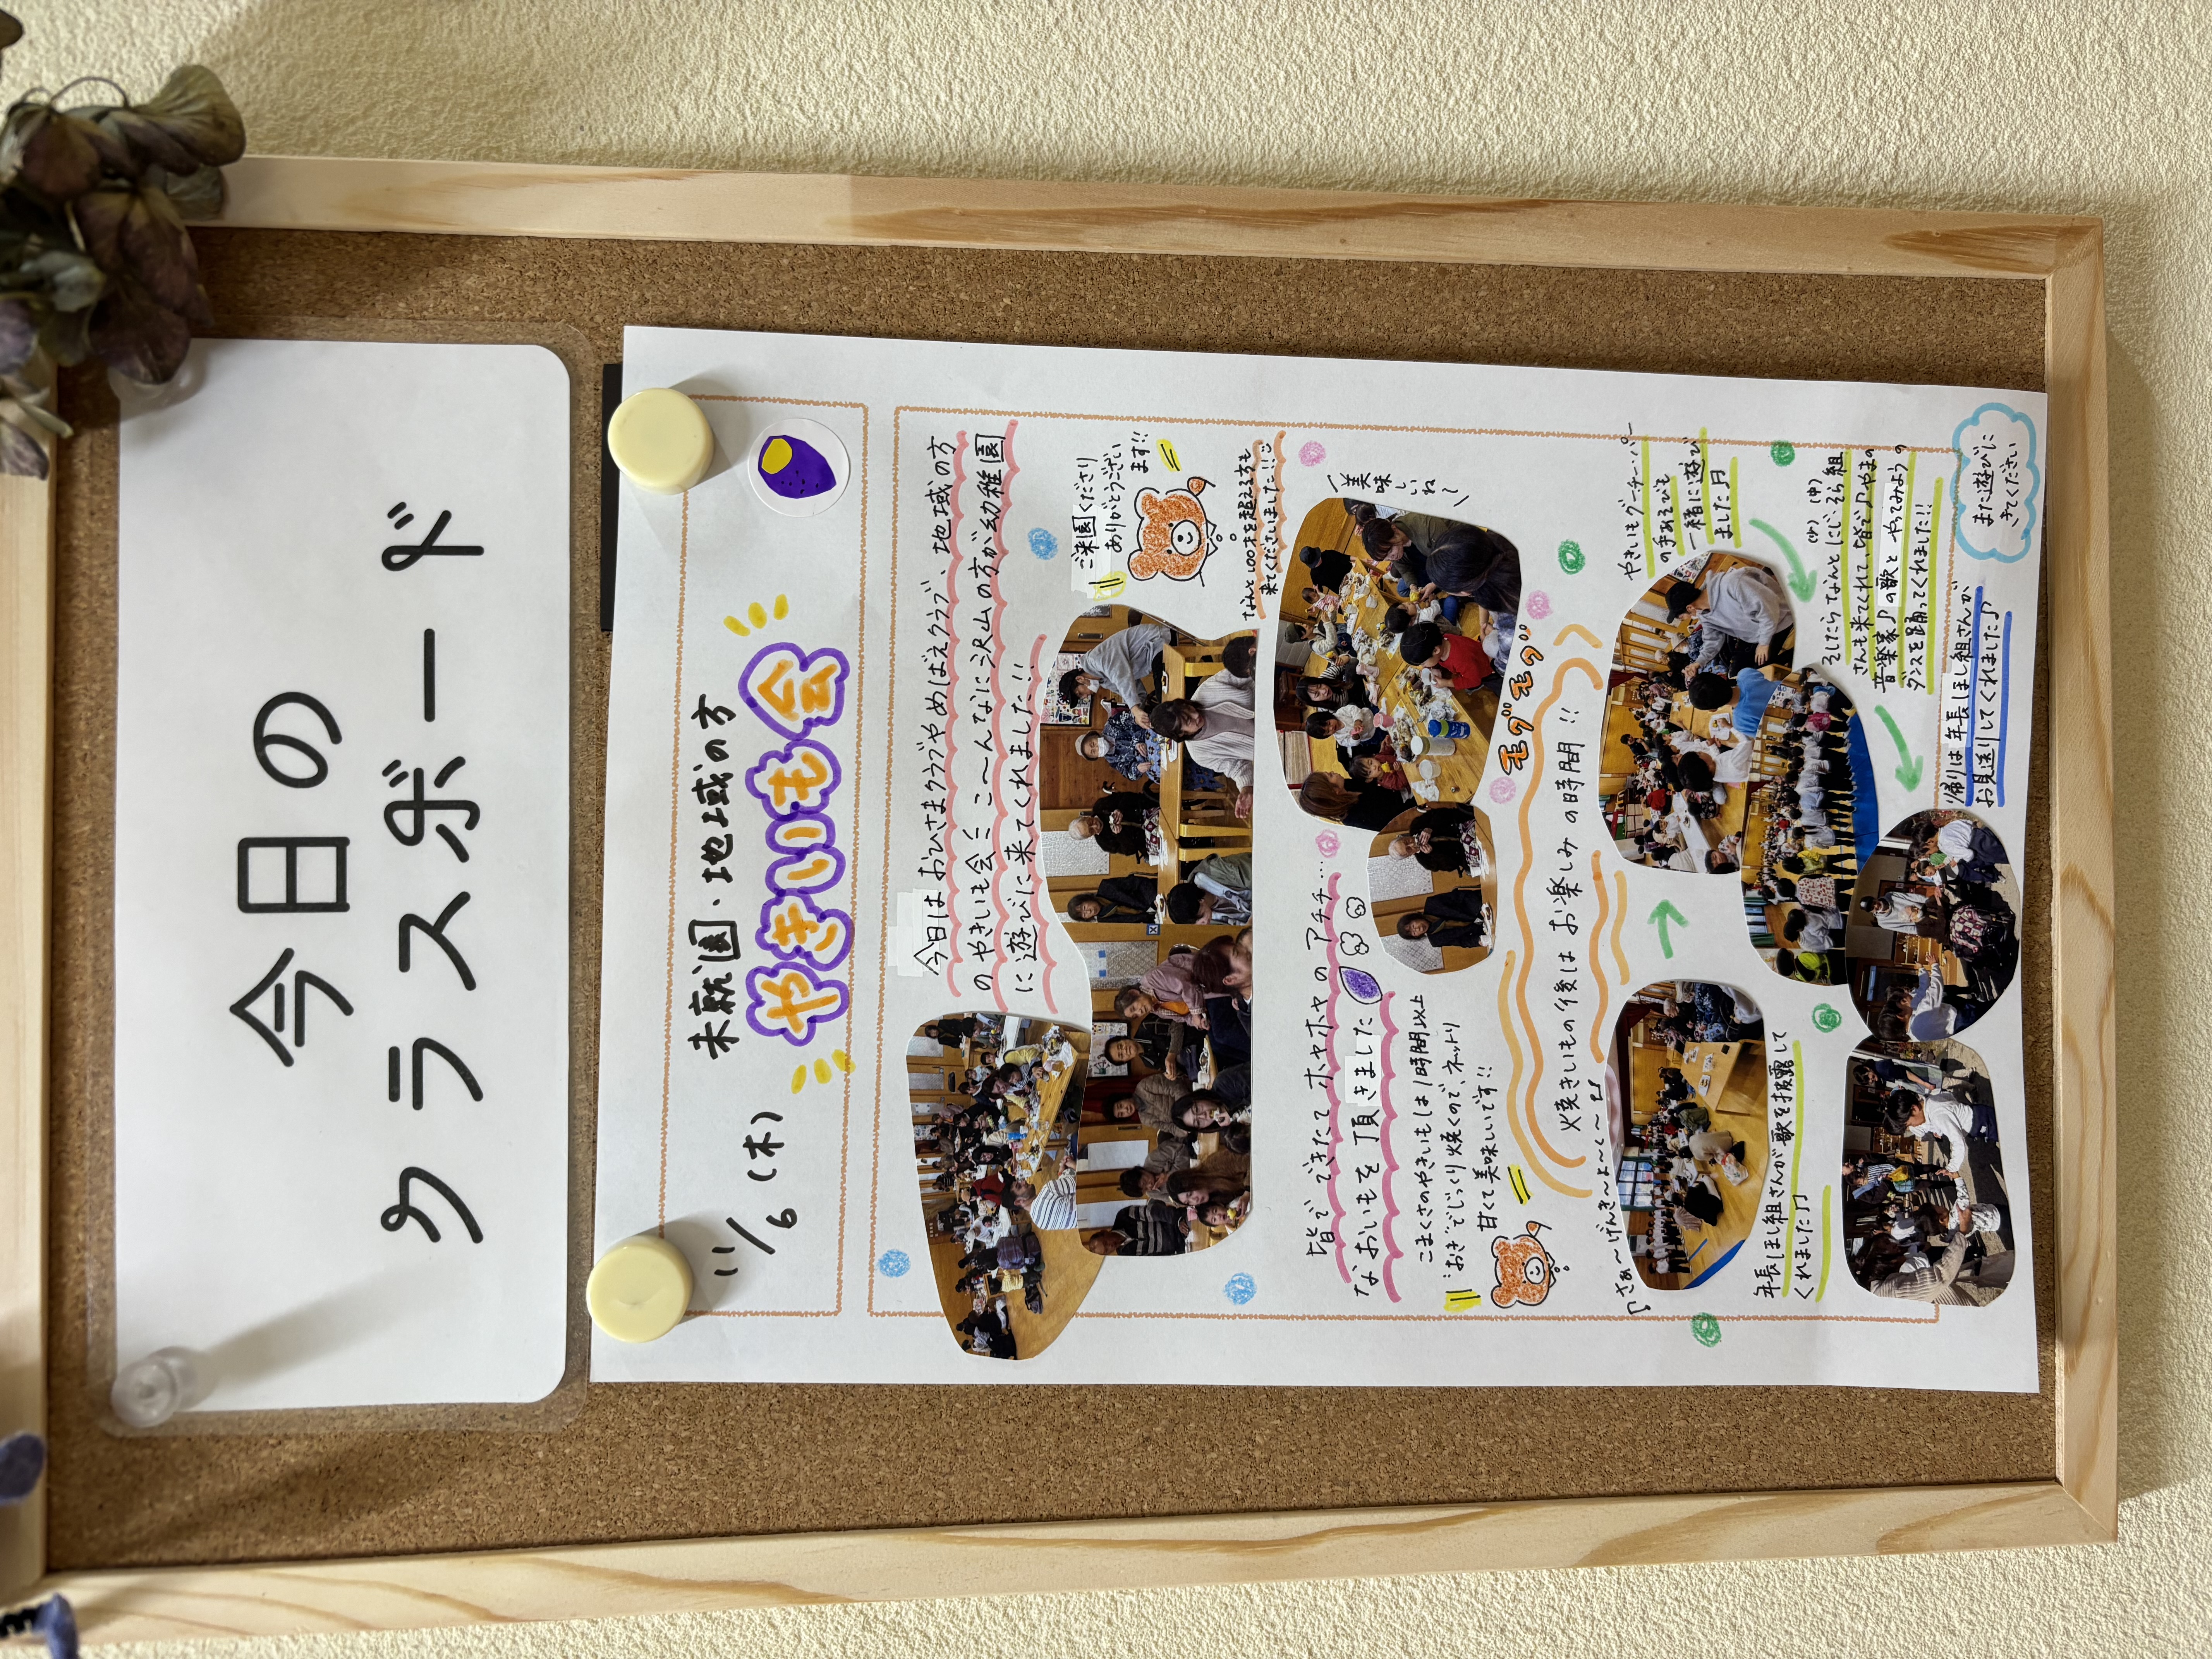 今日の
クラスボード
11/6（木）
未就園・地域の方
やきいも会
今日はおひさまクラブやめばえクラブ、地域の方
のやきいも会にこ〜んなに沢山の方が幼稚園
に遊びに来てくれました!!
ご来園くださり
ありがとうござい
ます!!
なんと100才を超える方も
来てくださいました!!
皆でできたてホヤホヤのアチチ…
なおいもを頂きました
美味しいね
こまくさのやきいもは1時間以上
おきでじっくり焼くので、ネットリ
甘くて美味しいです!!
モグモグ
焼きいもの後はお楽しみの時間!!
♪さぁ〜げんき〜よ〜く〜
年長ほし組さんが歌を披露して
くれました♪
やきいもグーチーパー
の手あそびも
一緒に遊び
ました♪
そしたらなんとにじ(少)、そら(中)組
さんも来てくれて、皆で♪やまの
音楽家♪の歌とやってみようの
ダンスを踊ってくれました!!
帰りは年長ほし組さんが
お見送りしてくれました♪
また遊びに
きてください